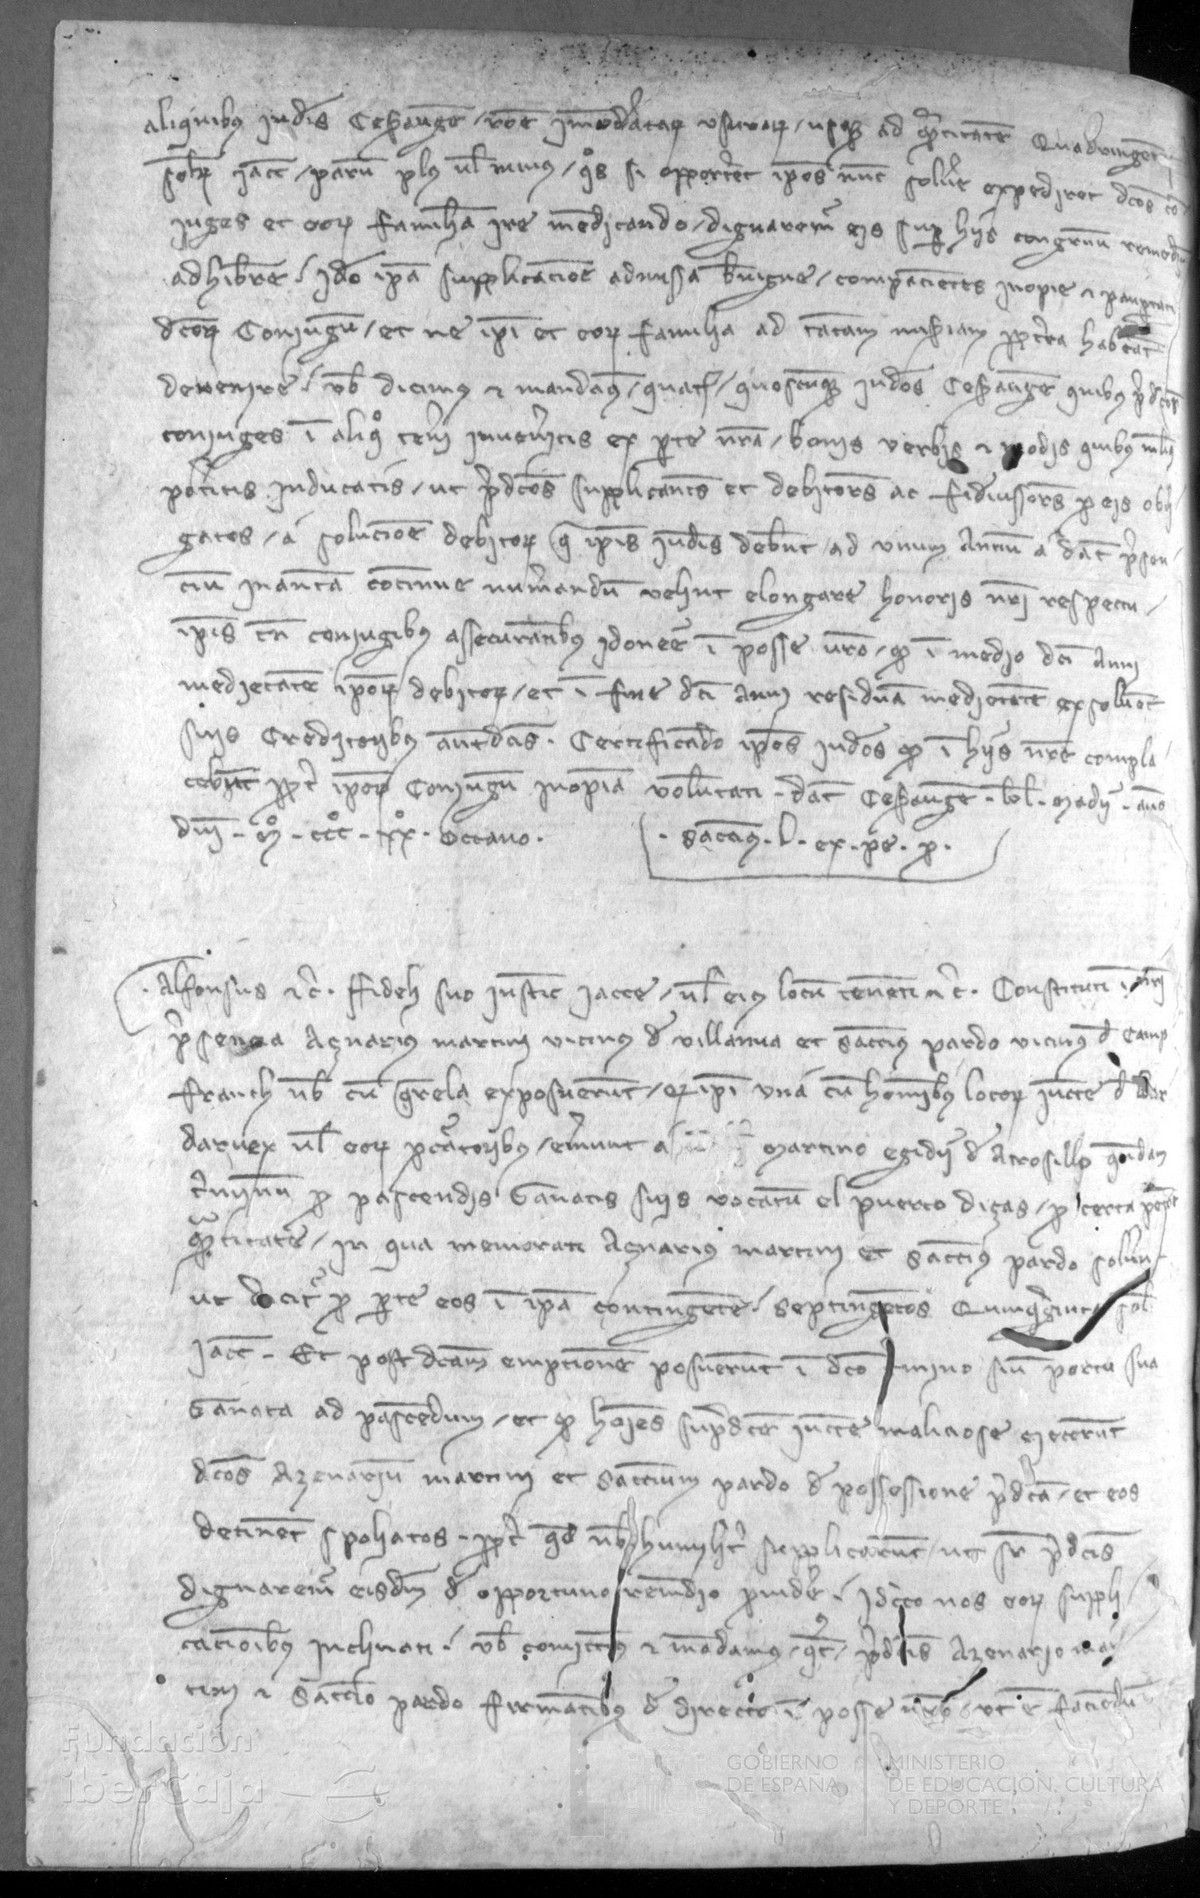 aliquibus Judeis Cesarauguste / racione immoderatarum usurarum / usque ad quantitatem Quadringentorum
solidorum Jaccensium / parum plus vel minus / quos si opporteret ipsos nunc solvere expediret dictos con
juges et eorum familia ire mendicando / dignaremur eis super hiis congruum remedium
adhibere / Ideo ipsa supplicacione admissa benigne / compacientes inopie et paupertati
dictorum Conjugum / et ne ipsi et eorum familia ad tantam miseriam propterea habeant
devenire / vobis dicimus et mandamus / quatenus / quoscumque Judeos Cesarauguste quibus predictos
conjuges in aliquo teneri inveneritis ex parte nostra / bonis verbis et modis quibus melius
poteritis inducatis / ut predictos supplicantes et debitores ac fideiussores pro eis obli
gatos / a solucione debitorum que ipsis Judeis debent / ad unum Annum a data presen
cium in antea continue numerandum velint elongare honoris nostri respectu /
ipsis tamen conjugibus assecurantibus idonee in posse vestro / quod in medio dicti Anni
medietatem ipsorum debitorum / et in fine dicti Anni residuam medietatem exsolvent
suis Creditoribus antedictis . Certificando ipsos Judeos quod in hiis nostre compla
cebunt propter ipsorum Conjugum inopiam voluntati . data Cesarauguste . kal . Madii . anno
domini . Mº . CCCº . XXº . Octavo .
. Sancius . l . ex . pe . p .
. Alfonsus etc . Fideli suo Justicie Jacce / vel eius locum tenenti etc . Constituti in nostri
presencia Açnarius martini vicinus de villanua et Sanccius pardo vicinus de Camp
franch nobis cum querela exposuerunt / quod ipsi una cum hominibus locorum iuncte de
darvex vel eorum procuratoribus / emerunt a Martino egidii de Atrosillo quendam
terminum pro pascendis Ganatis suis vocatum el puerto digas / pro certa peccunie
quantitate / In qua memorati Açnarius martini et Sanccius pardo solverunt
ut dicitur pro parte eos in ipsa contingente / Septingentos Quinquaginta solidos
Jaccenses . Et post dictam empcionem posuerunt in dicto termino sive portu sua
Ganata ad pascendum / et quod homines supradicte iuncte maliciose ejecerunt
dictos Azenarium martini et Sanccium pardo de possessione predicta / et eos
detinent spoliatos . propter quod nobis humiliter supplicarunt / ut super predictis
dignaremur eisdem de opportuno remedio providere / Idcirco nos eorum suppli
cacionibus inclinati / vobis comittimus et mandamus / quatenus / predictis Azenario mar
tini et Sanccio pardo firmantibus de directo in posse vestro / ut est faciendum
Fundación
iberCaja
GOBIERNO
DE ESPAÑA
MINISTERIO
DE EDUCACIÓN, CULTURA
Y DEPORTE